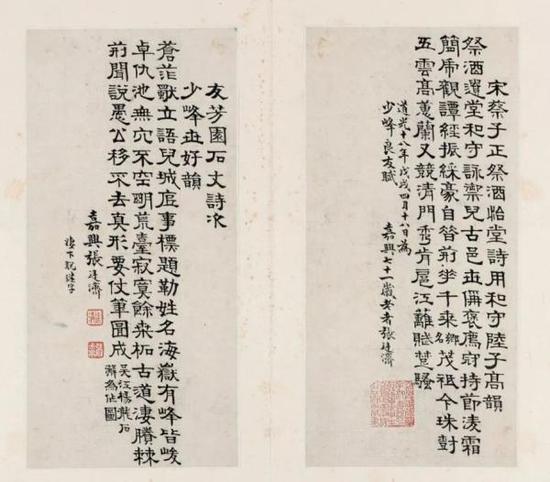 宋蔡子正祭酒怡堂詩用和守陸子高韻
祭酒遺堂和守詠禦兒古邑出褒守持節凌霜
簡觀譚經振綵豪自昝前千來鄉名茂祗今珠尌
五雲高蕙蘭又競清門秀肯扈江蘺賦楚騷
道光十八年戊戌四月十八日為
少峰良友賦 嘉興七十一歲老者張廷濟
友芳園石丈詩次
少峰世好韻
蒼茫獸立語兒城底事標題勒姓名海嶽有峰皆峻
卓仇池無穴不空明荒臺寂寞餘桑柘古道淒賸棘
荊聞說愚公移不去真形要仗筆圖成 吳江楊龍石澥為作圖
嘉興張廷濟
淒下脫涼字